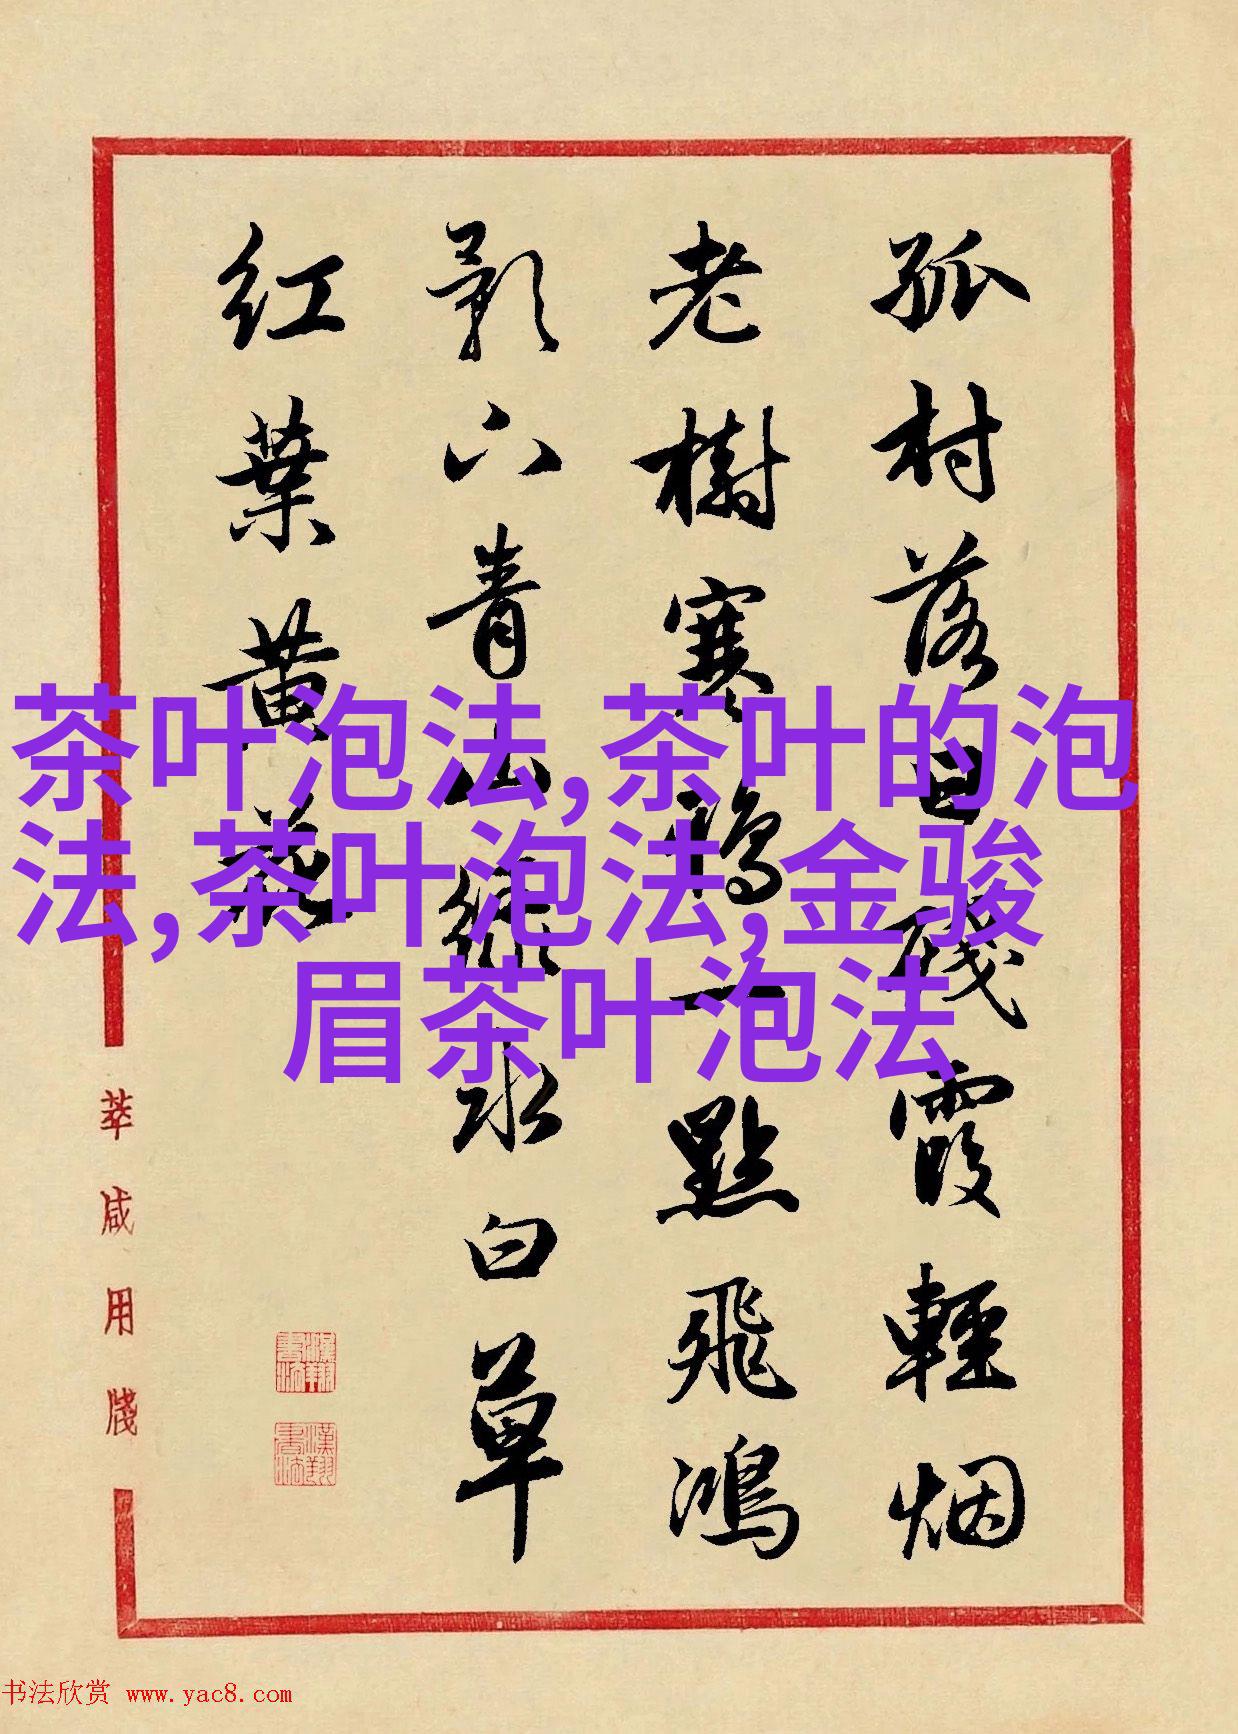 孤村落日殘霞輕烟
老樹寒鴉一點飛鴻
影下青山綠水白草
红葉黃花
茶叶泡法,茶叶的泡
法,茶叶泡法,金骏
眉茶叶泡法
萃咸用牋
漢翔書法
漢翔書法
书法欣赏 www.yac8.com